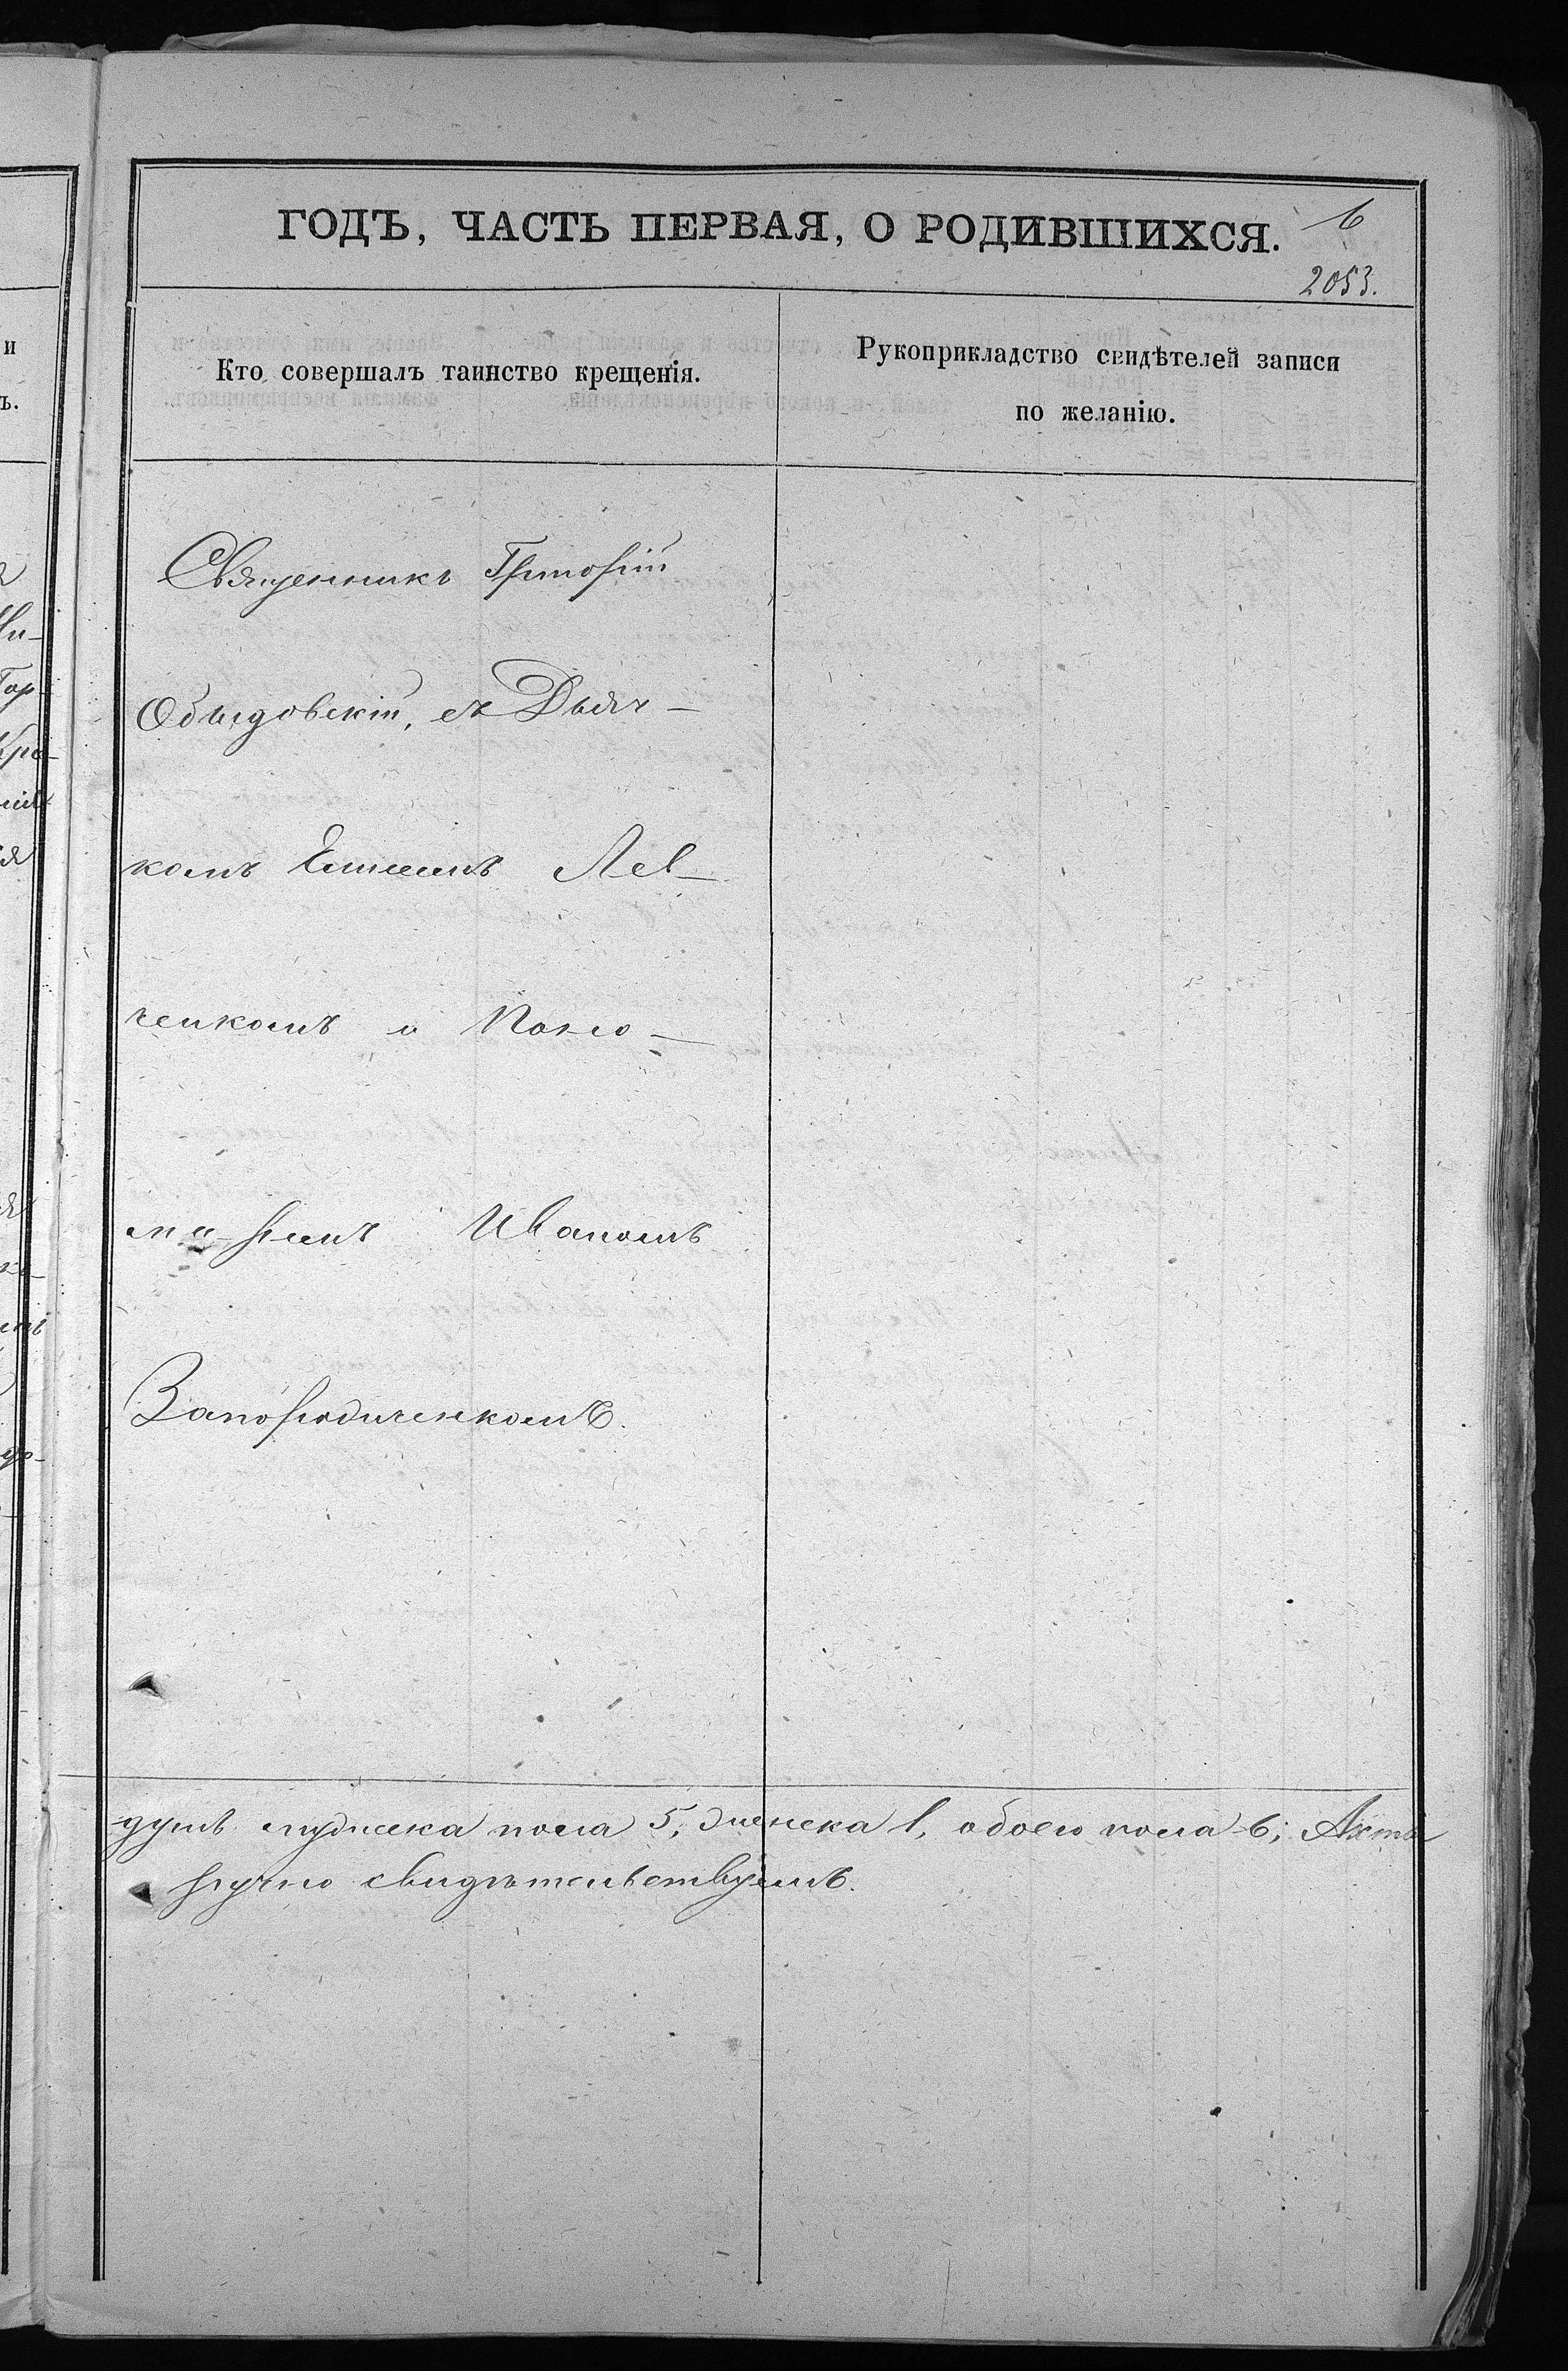 ГОДЪ, ЧАСТЬ ПЕРВАЯ, О РОДИВШИХСЯ.
6
2053.
Кто совершалъ таинство крещенія.
Рукоприкладство свидѣтелей записи
по желанію.
Священникъ Григорій
Обыдовскій, съ Дьяч-
комъ Лев-
ченкомъ и Поно-
маремъ Иваномъ
душъ мужеска пола 5, женска 1, обоего пола 6;
ручно свидѣтельствуемъ.